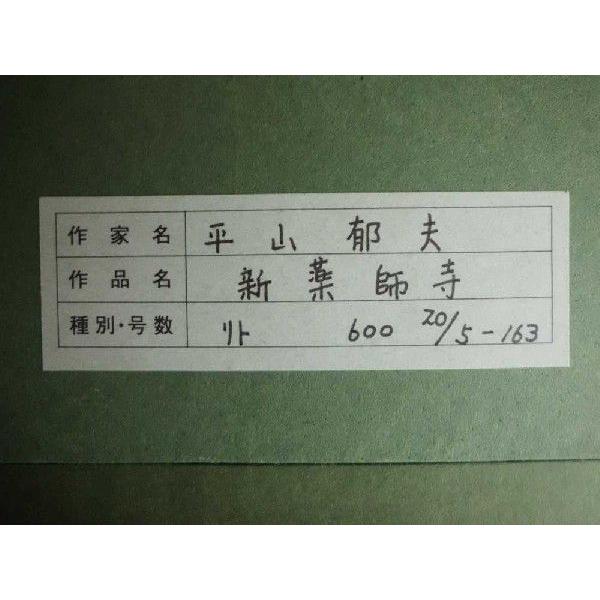 作家名 平山 郁夫
作品名 新薬師寺
種別・号数 リト 600 20/5-163